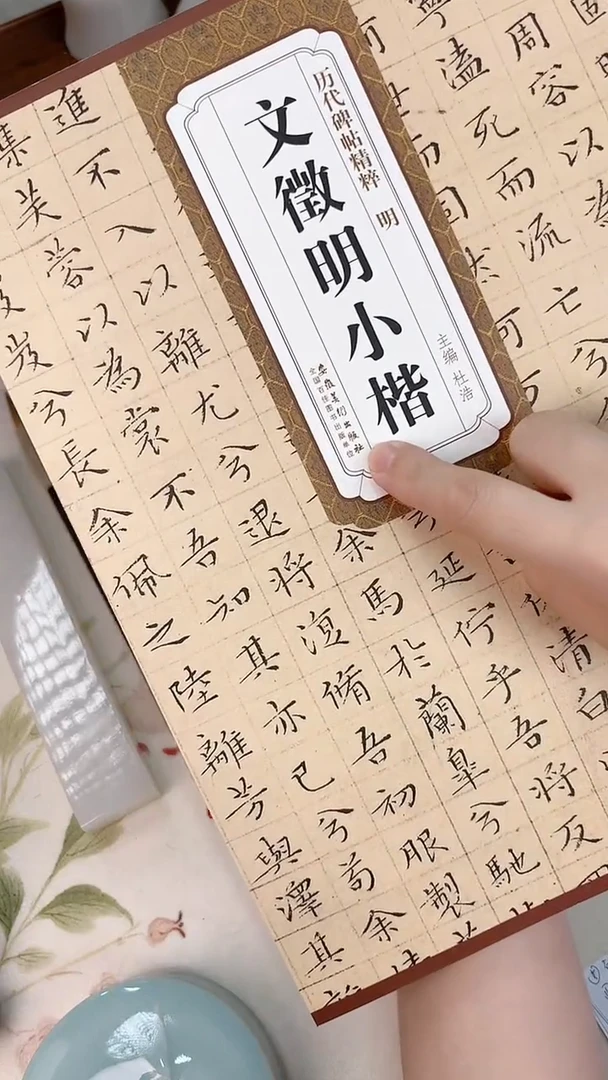 历代碑帖精粹 明
文徵明小楷
主编 杜浩
安徽美术出版社
全国百佳图书出版单位
周容以
寧溘死而流亡兮
清白
延佇乎吾將反
余馬於蘭皐兮馳
進不入以離尤兮退將復脩吾初服製
集芙蓉以為裳不吾知其亦已兮苟余
岌兮長余佩之陸離芳與澤其